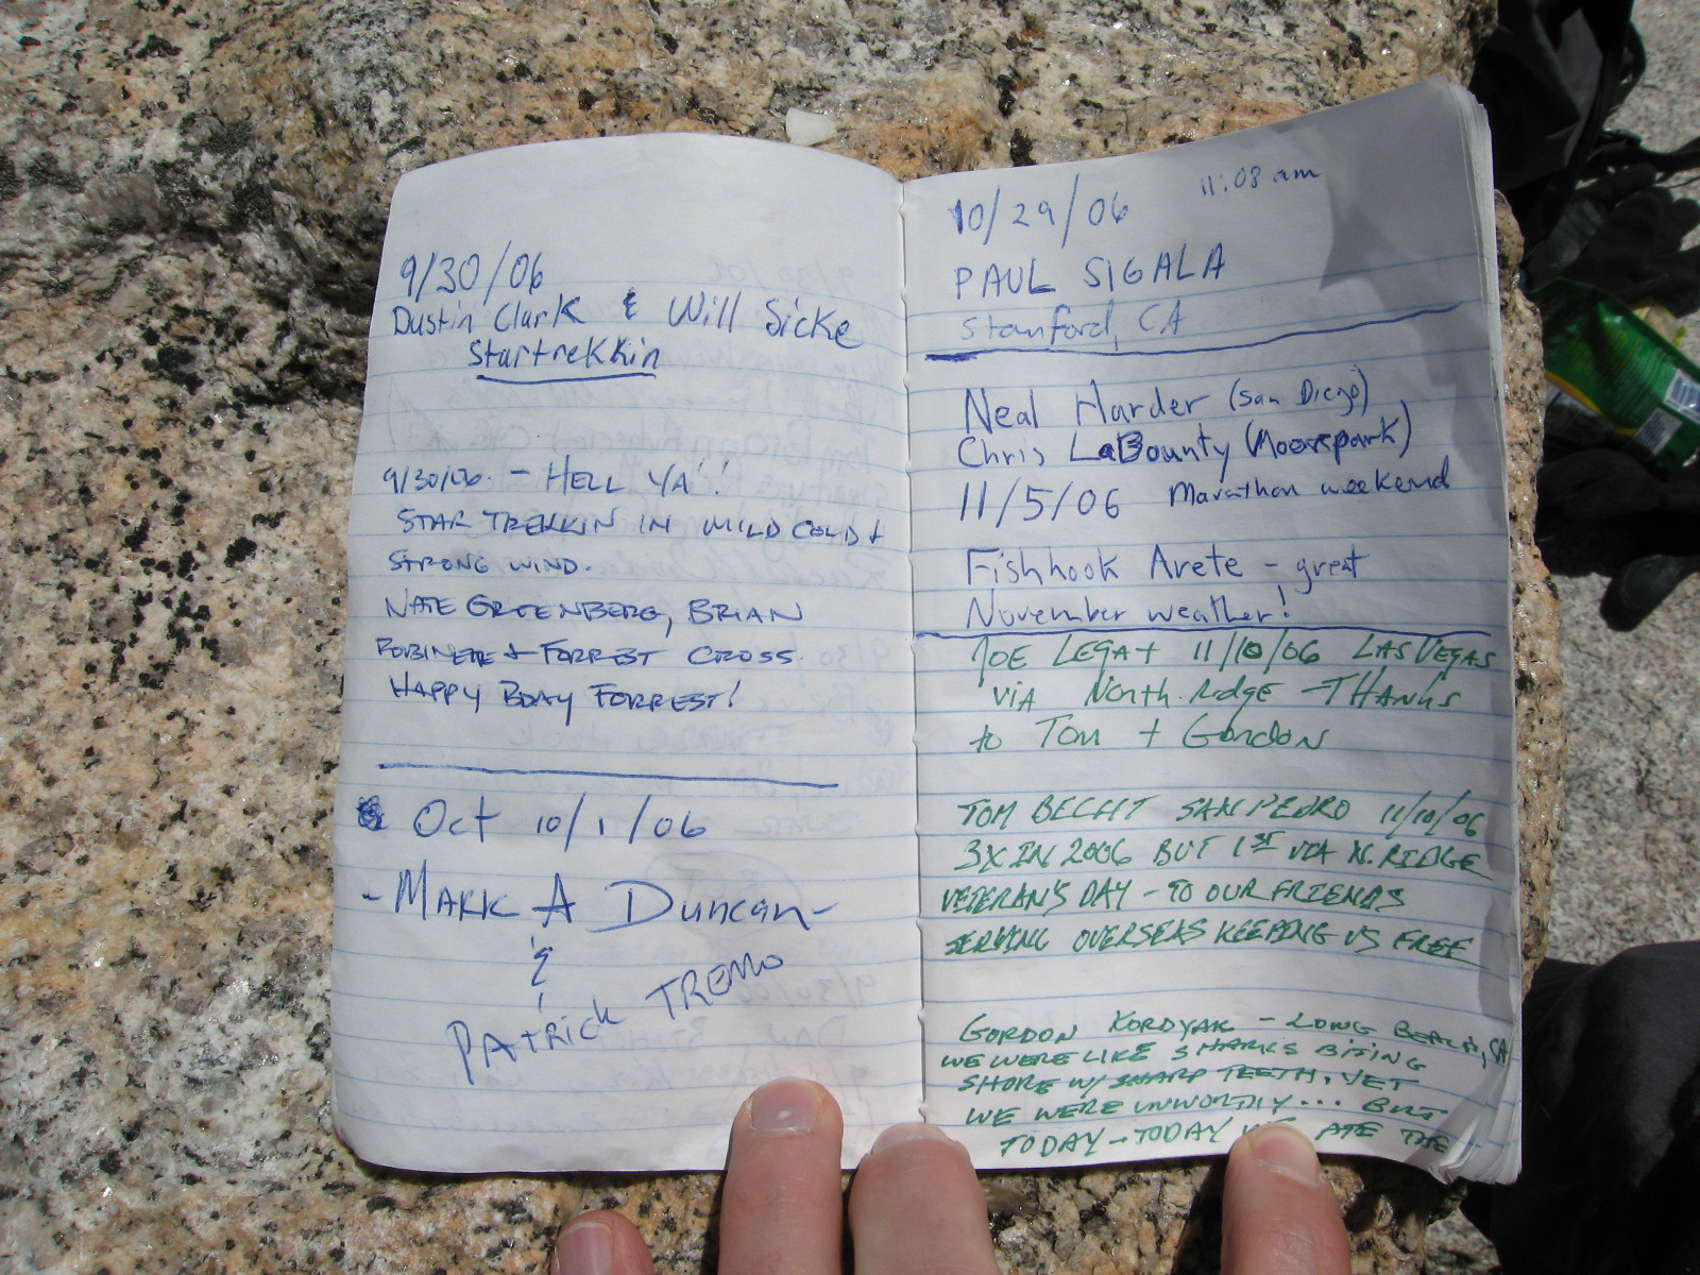 9/30/06
Dustin Clark & Will Sicke
Startrekkin
9/30/06 - HELL YA'!
STAR TREKKIN IN MILD COLD &
STRONG WIND.
NATE GREENBERG, BRIAN
ROBINETTE & FORREST CROSS.
HAPPY BDAY FORREST!
Oct 10/1/06
- MARK A Duncan -
&
PATRICK TREMO
11:08 am
10/29/06
PAUL SIGALA
Stanford, CA
Neal Harder (San Diego)
Chris LaBounty (Moorpark)
11/5/06 Marathon weekend
Fishhook Arete - great
November weather!
JOE LEGAT 11/10/06 LAS VEGAS
VIA North Ridge - THANKS
to Tom + Gordon
TOM BECHT SAN PEDRO 11/10/06
3X IN 2006 BUT 1ST VIA N. RIDGE
VETERAN'S DAY - TO OUR FRIENDS
SERVING OVERSEAS KEEPING US FREE
GORDON KORDYAK - LONG BEACH, CA
WE WERE LIKE SHARKS BITING
SHORE W/ SHARP TEETH. YET
WE WERE UNWORTHY... BUT
TODAY - TODAY WE ATE THE